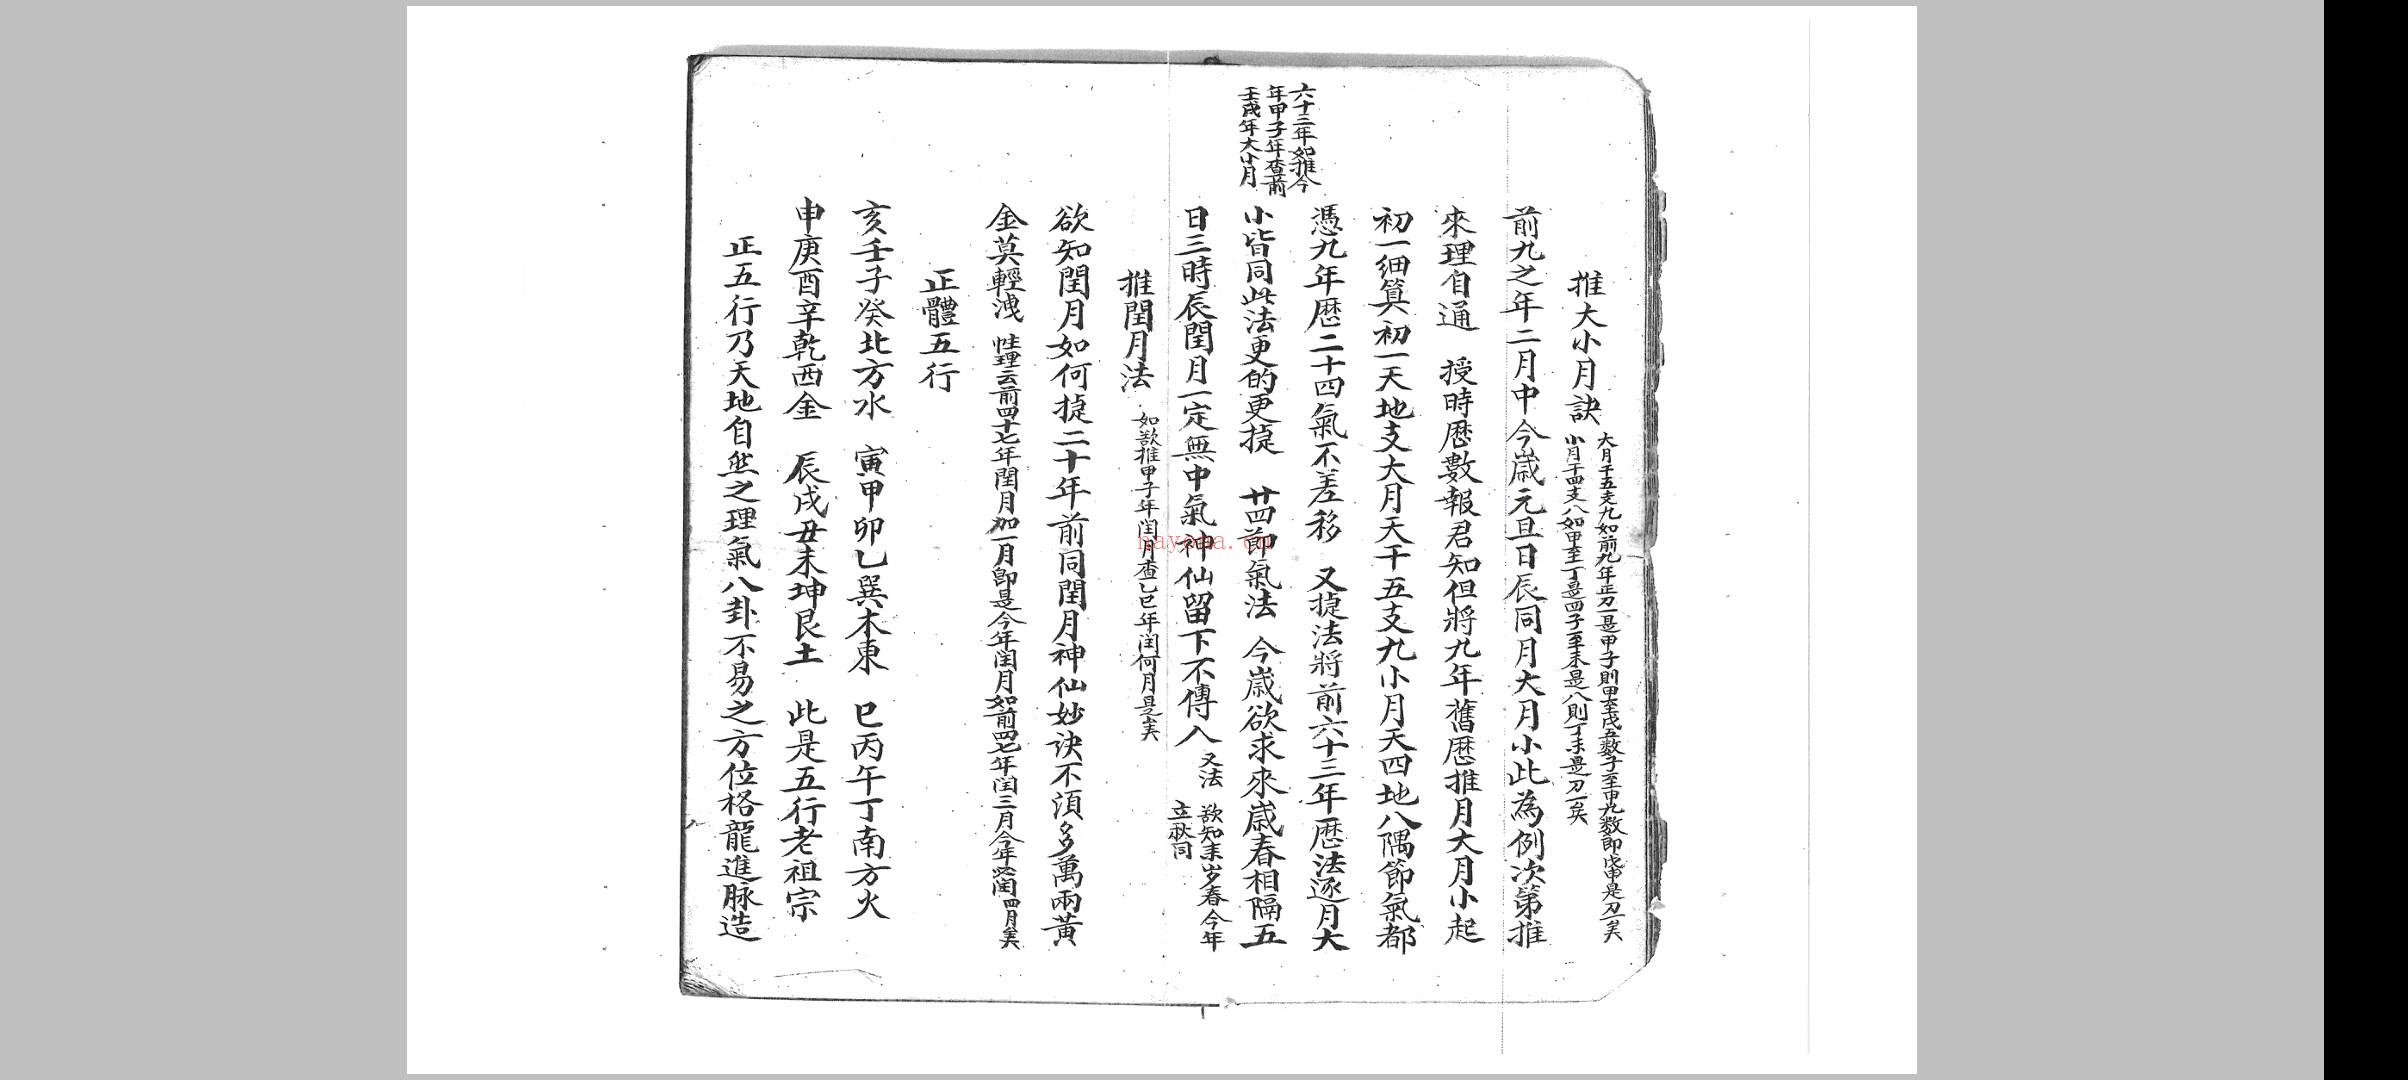 推大小月訣
大月干五支九如前九年正刀一是甲子則甲至戊五数子至申九数即戊申是刀一矣
小月干四支八如甲至丁是四子至未是八則丁未是刀一矣
前九之年二月中今歲元旦日辰同月大月小此為例次第推
來理自通　授時厯數報君知但將九年舊厯推月大月小起
初一細算初一天地支大月天干五支九小月天四地八隅節氣都
憑九年厯二十四氣不差移　又㨗法將前六十三年厯法逐月大
六十三年如推今
年甲子年查前
壬戌年大小月
小皆同此法更的更㨗　廿四節氣法　今歲欲求來歲春相隔五
日三時辰閏月一定無中氣神仙留下不傳人
又法　欲知來岁春今年
立秋同
推閏月法
如欲推甲子年闰月查乙巳年闰何月是矣
欲知閏月如何㨗二十年前同閏月神仙妙訣不須多萬兩黃
金莫輕洩
性理云前四十七年閏月加一月即是今年闰月如前四七年闰三月今年必闰四月矣
正體五行
亥壬子癸北方水　寅甲卯乙巽木東　巳丙午丁南方火
申庚酉辛乾西金　辰戌丑未坤艮土　此是五行老祖宗
正五行乃天地自然之理氣八卦不易之方位格龍進脉造
nayona.cn